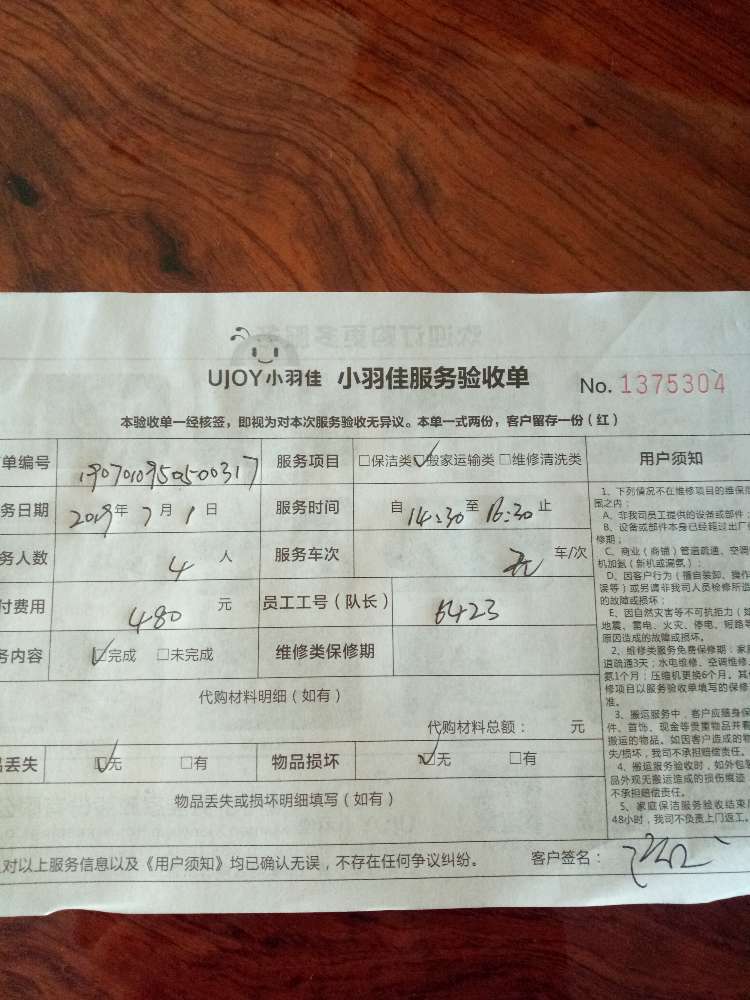 UJOY小羽佳 小羽佳服务验收单 No. 1375304
本验收单一经核签，即视为对本次服务验收无异议。本单一式两份，客户留存一份（红）
单编号 1907010950500317 服务项目 □保洁类 ☑搬家运输类 □维修清洗类 用户须知
务日期 2019年 7月 1日 服务时间 自 14:30 至 16:30 止
务人数 4 人 服务车次 无 车/次
付费用 480 元 员工工号（队长） 6423
务内容 ☑完成 □未完成 维修类保修期
代购材料明细（如有）
代购材料总额： 元
品丢失 ☑无 □有 物品损坏 ☑无 □有
物品丢失或损坏明细填写（如有）
对以上服务信息以及《用户须知》均已确认无误，不存在任何争议纠纷。 客户签名：
1、下列情况不在维修项目的维保范
围之内：
A、非我司员工提供的设备或部件；
B、设备或部件本身已经超过出厂
修期；
C、商业（商铺）管道疏通、空调
机加氨（新机或漏氨）；
D、因客户行为（擅自装卸、操作
误等）或另请非我司人员检修所造
的故障或损坏；
E、因自然灾害等不可抗拒力（如
地震、雷电、火灾、停电、短路等
原因造成的故障或损坏。
2、维修类服务免费保修期：家庭
道疏通3天；水电维修、空调维修、
氨1个月；压缩机更换6个月。其他
修项目以服务验收单填写的保修
准。
3、搬运服务中，客户应随身保
件、首饰、现金等贵重物品并看
搬运的物品。如因客户造成的物
失/损坏，我司不承担赔偿责任。
4、搬运服务验收时，如外包装
品外观无搬运造成的损伤痕迹
不承担赔偿责任。
5、家庭保洁服务验收结束
48小时，我司不负责上门返工。